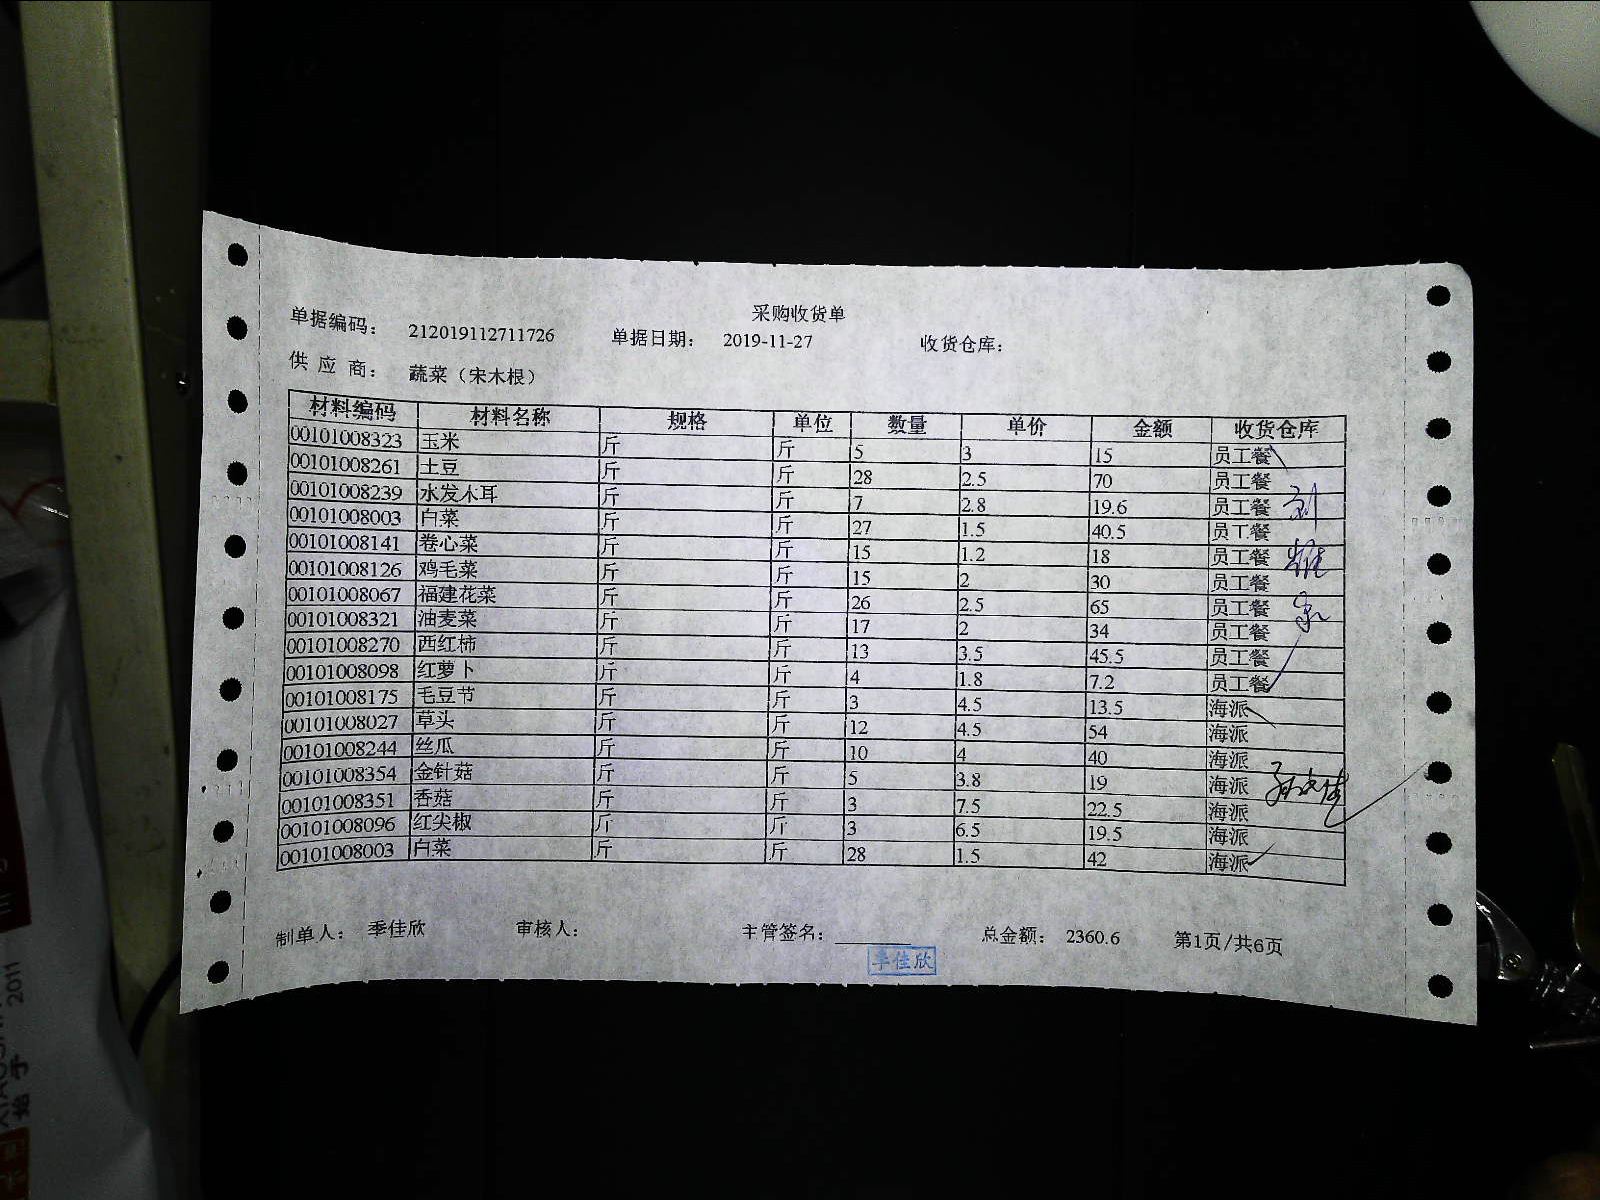 采购收货单
单据编码： 212019112711726 单据日期： 2019-11-27 收货仓库：
供 应 商： 蔬菜（宋木根）
材料编码 材料名称 规格 单位 数量 单价 金额 收货仓库
00101008323 玉米 斤 斤 5 3 15 员工餐
00101008261 土豆 斤 斤 28 2.5 70 员工餐
00101008239 水发木耳 斤 斤 7 2.8 19.6 员工餐
00101008003 白菜 斤 斤 27 1.5 40.5 员工餐
00101008141 卷心菜 斤 斤 15 1.2 18 员工餐
00101008126 鸡毛菜 斤 斤 15 2 30 员工餐
00101008067 福建花菜 斤 斤 26 2.5 65 员工餐
00101008321 油麦菜 斤 斤 17 2 34 员工餐
00101008270 西红柿 斤 斤 13 3.5 45.5 员工餐
00101008098 红萝卜 斤 斤 4 1.8 7.2 员工餐
00101008175 毛豆节 斤 斤 3 4.5 13.5 海派
00101008027 草头 斤 斤 12 4.5 54 海派
00101008244 丝瓜 斤 斤 10 4 40 海派
00101008354 金针菇 斤 斤 5 3.8 19 海派
00101008351 香菇 斤 斤 3 7.5 22.5 海派
00101008096 红尖椒 斤 斤 3 6.5 19.5 海派
00101008003 白菜 斤 斤 28 1.5 42 海派
制单人： 季佳欣 审核人： 主管签名： 总金额： 2360.6 第1页/共6页
季佳欣
2011